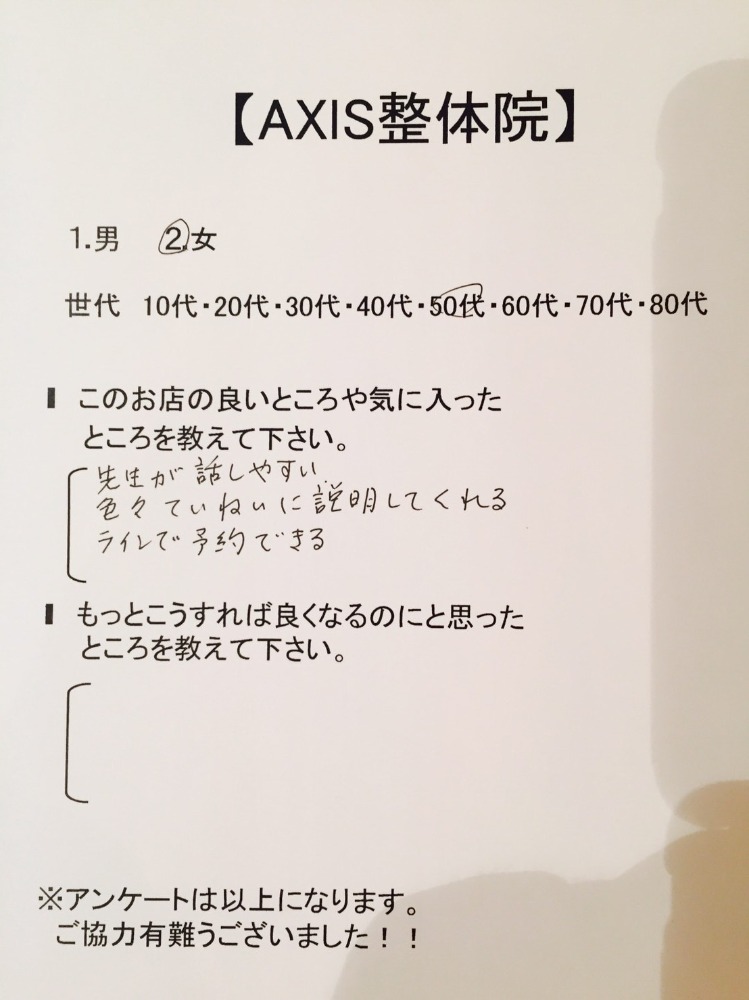 【AXIS整体院】
1.男 2.女
世代 10代・20代・30代・40代・50代・60代・70代・80代
▌ このお店の良いところや気に入った
ところを教えて下さい。
先生が話しやすい
色々ていねいに説明してくれる
ラインで予約できる
▌ もっとこうすれば良くなるのにと思った
ところを教えて下さい。
※アンケートは以上になります。
ご協力有難うございました！！